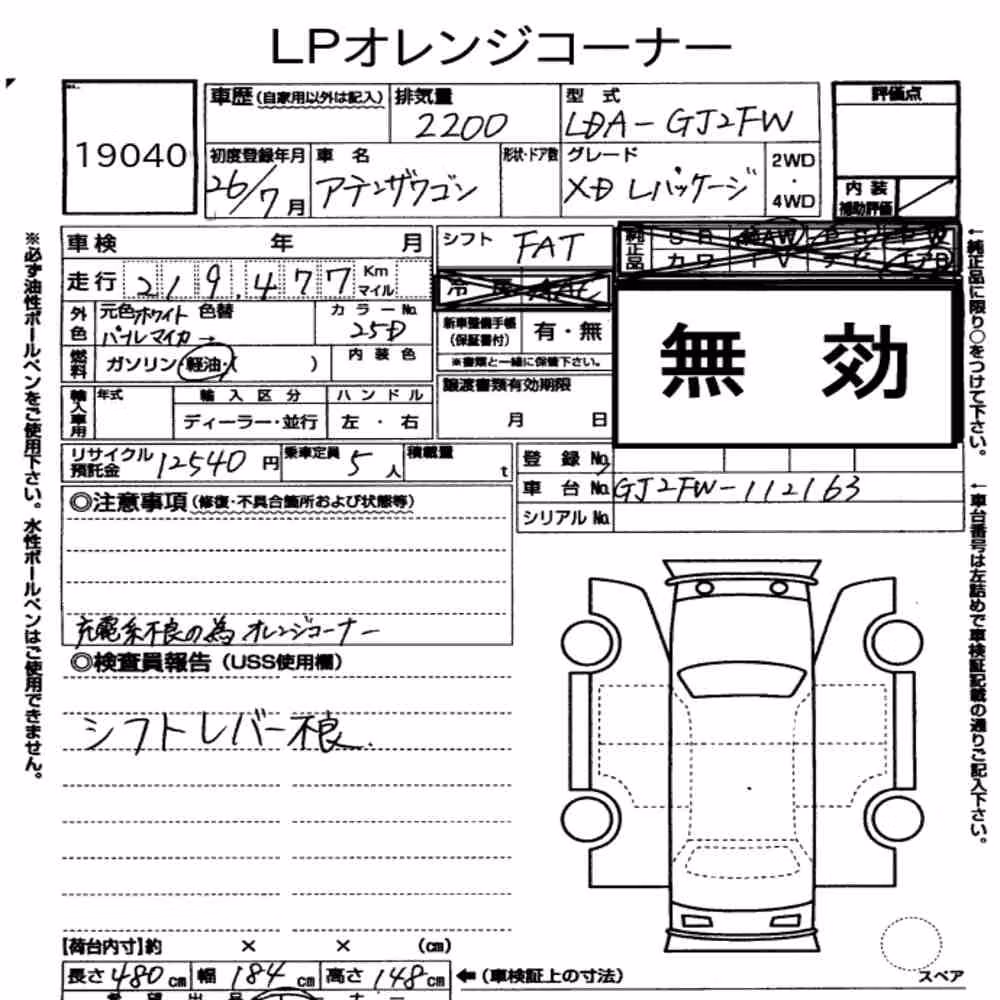 LPオレンジコーナー
19040
車歴(自家用以外は記入) 排気量 2200 型式 LDA-GJ2FW 評価点
初度登録年月 26/7月 車名 アテンザワゴン 形状・ドア数 グレード XD Lパッケージ 2WD・4WD 内装補助評価
車検 年 月 シフト FAT 純正品 SR 純AW PS PW
カワ TV ナビ エアB
走行 219,477 Km マイル 冷房 AAC
外色 元色ホワイトパールマイカ→ 色替 カラーNo. 25D 新車整備手帳(保証書付) 有・無
燃料 ガソリン・軽油・( ) 内装色 ※書類と一緒に保管下さい。
無効
輸入車用 年式 輸入区分 ハンドル 譲渡書類有効期限
ディーラー・並行 左・右 月 日
リサイクル預託金 12540円 乗車定員 5人 積載量 t 登録No.
車台No. GJ2FW-112163
シリアルNo.
◎注意事項(修復・不具合箇所および状態等)
充電系不良の為オレンジコーナー
◎検査員報告(USS使用欄)
シフトレバー不良.
【荷台内寸】約 × × (cm)
長さ480cm 幅184cm 高さ148cm ←(車検証上の寸法)
スペア
※必ず油性ボールペンをご使用下さい。水性ボールペンはご使用できません。
←純正品に限り○をつけて下さい。
←車台番号は左詰めで車検証記載の通りご記入下さい。